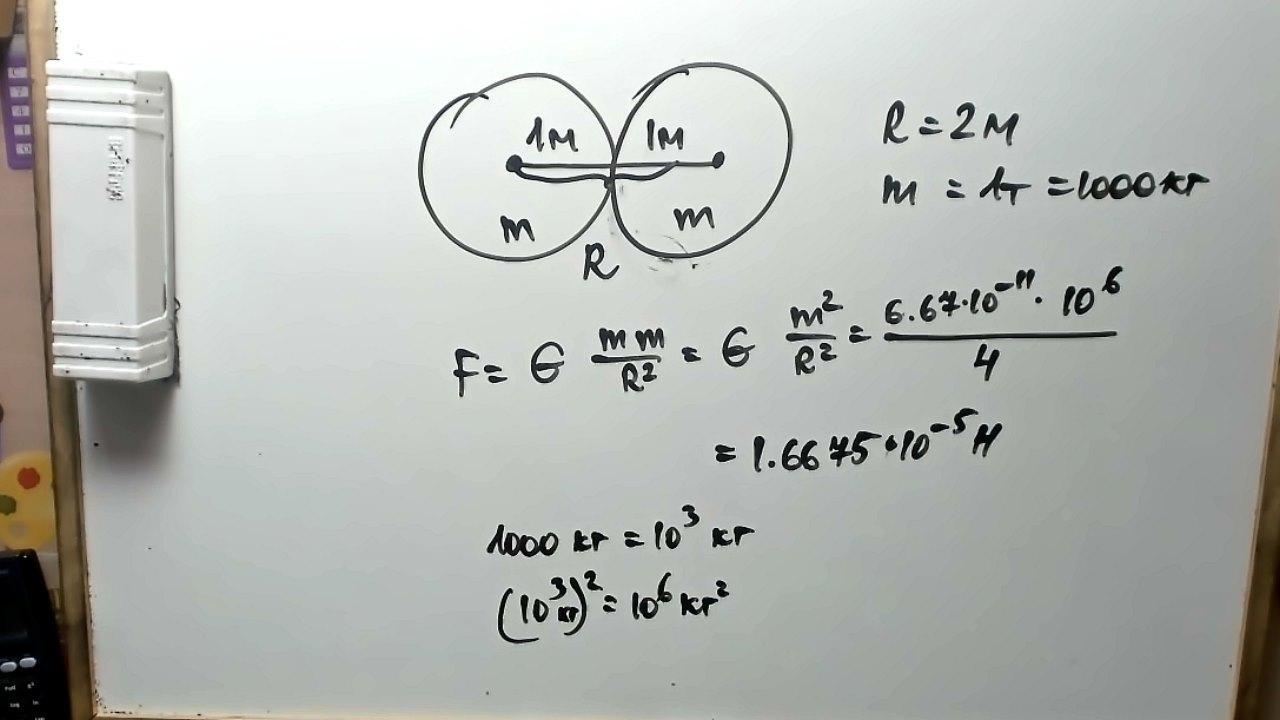 1м 1м
m m
R
R = 2м
m = 1т = 1000 кг
F = G mm/R² = G m²/R² = 6.67·10⁻¹¹ · 10⁶/4
= 1.6675·10⁻⁵ Н
1000 кг = 10³ кг
(10³ кг)² = 10⁶ кг²